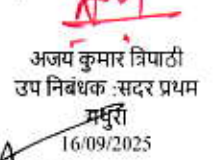 अजय कुमार त्रिपाठी
उप निबंधक :सदर प्रथम
मथुरा
16/09/2025